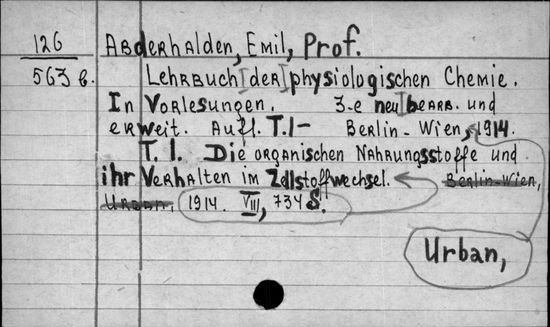 126 Abderhalden, Emil, Prof.
563 b. Lehrbuch der physiologischen Chemie.
In Vorlesungen. 3-e neu bearb. und
erweit. Aufl. T.1- Berlin-Wien, 1914.
T. 1. Die organischen Nahrungsstoffe und
ihr Verhalten im Zellstoffwechsel. Berlin-Wien,
Urban, 1914. VIII, 734 S.
Urban,